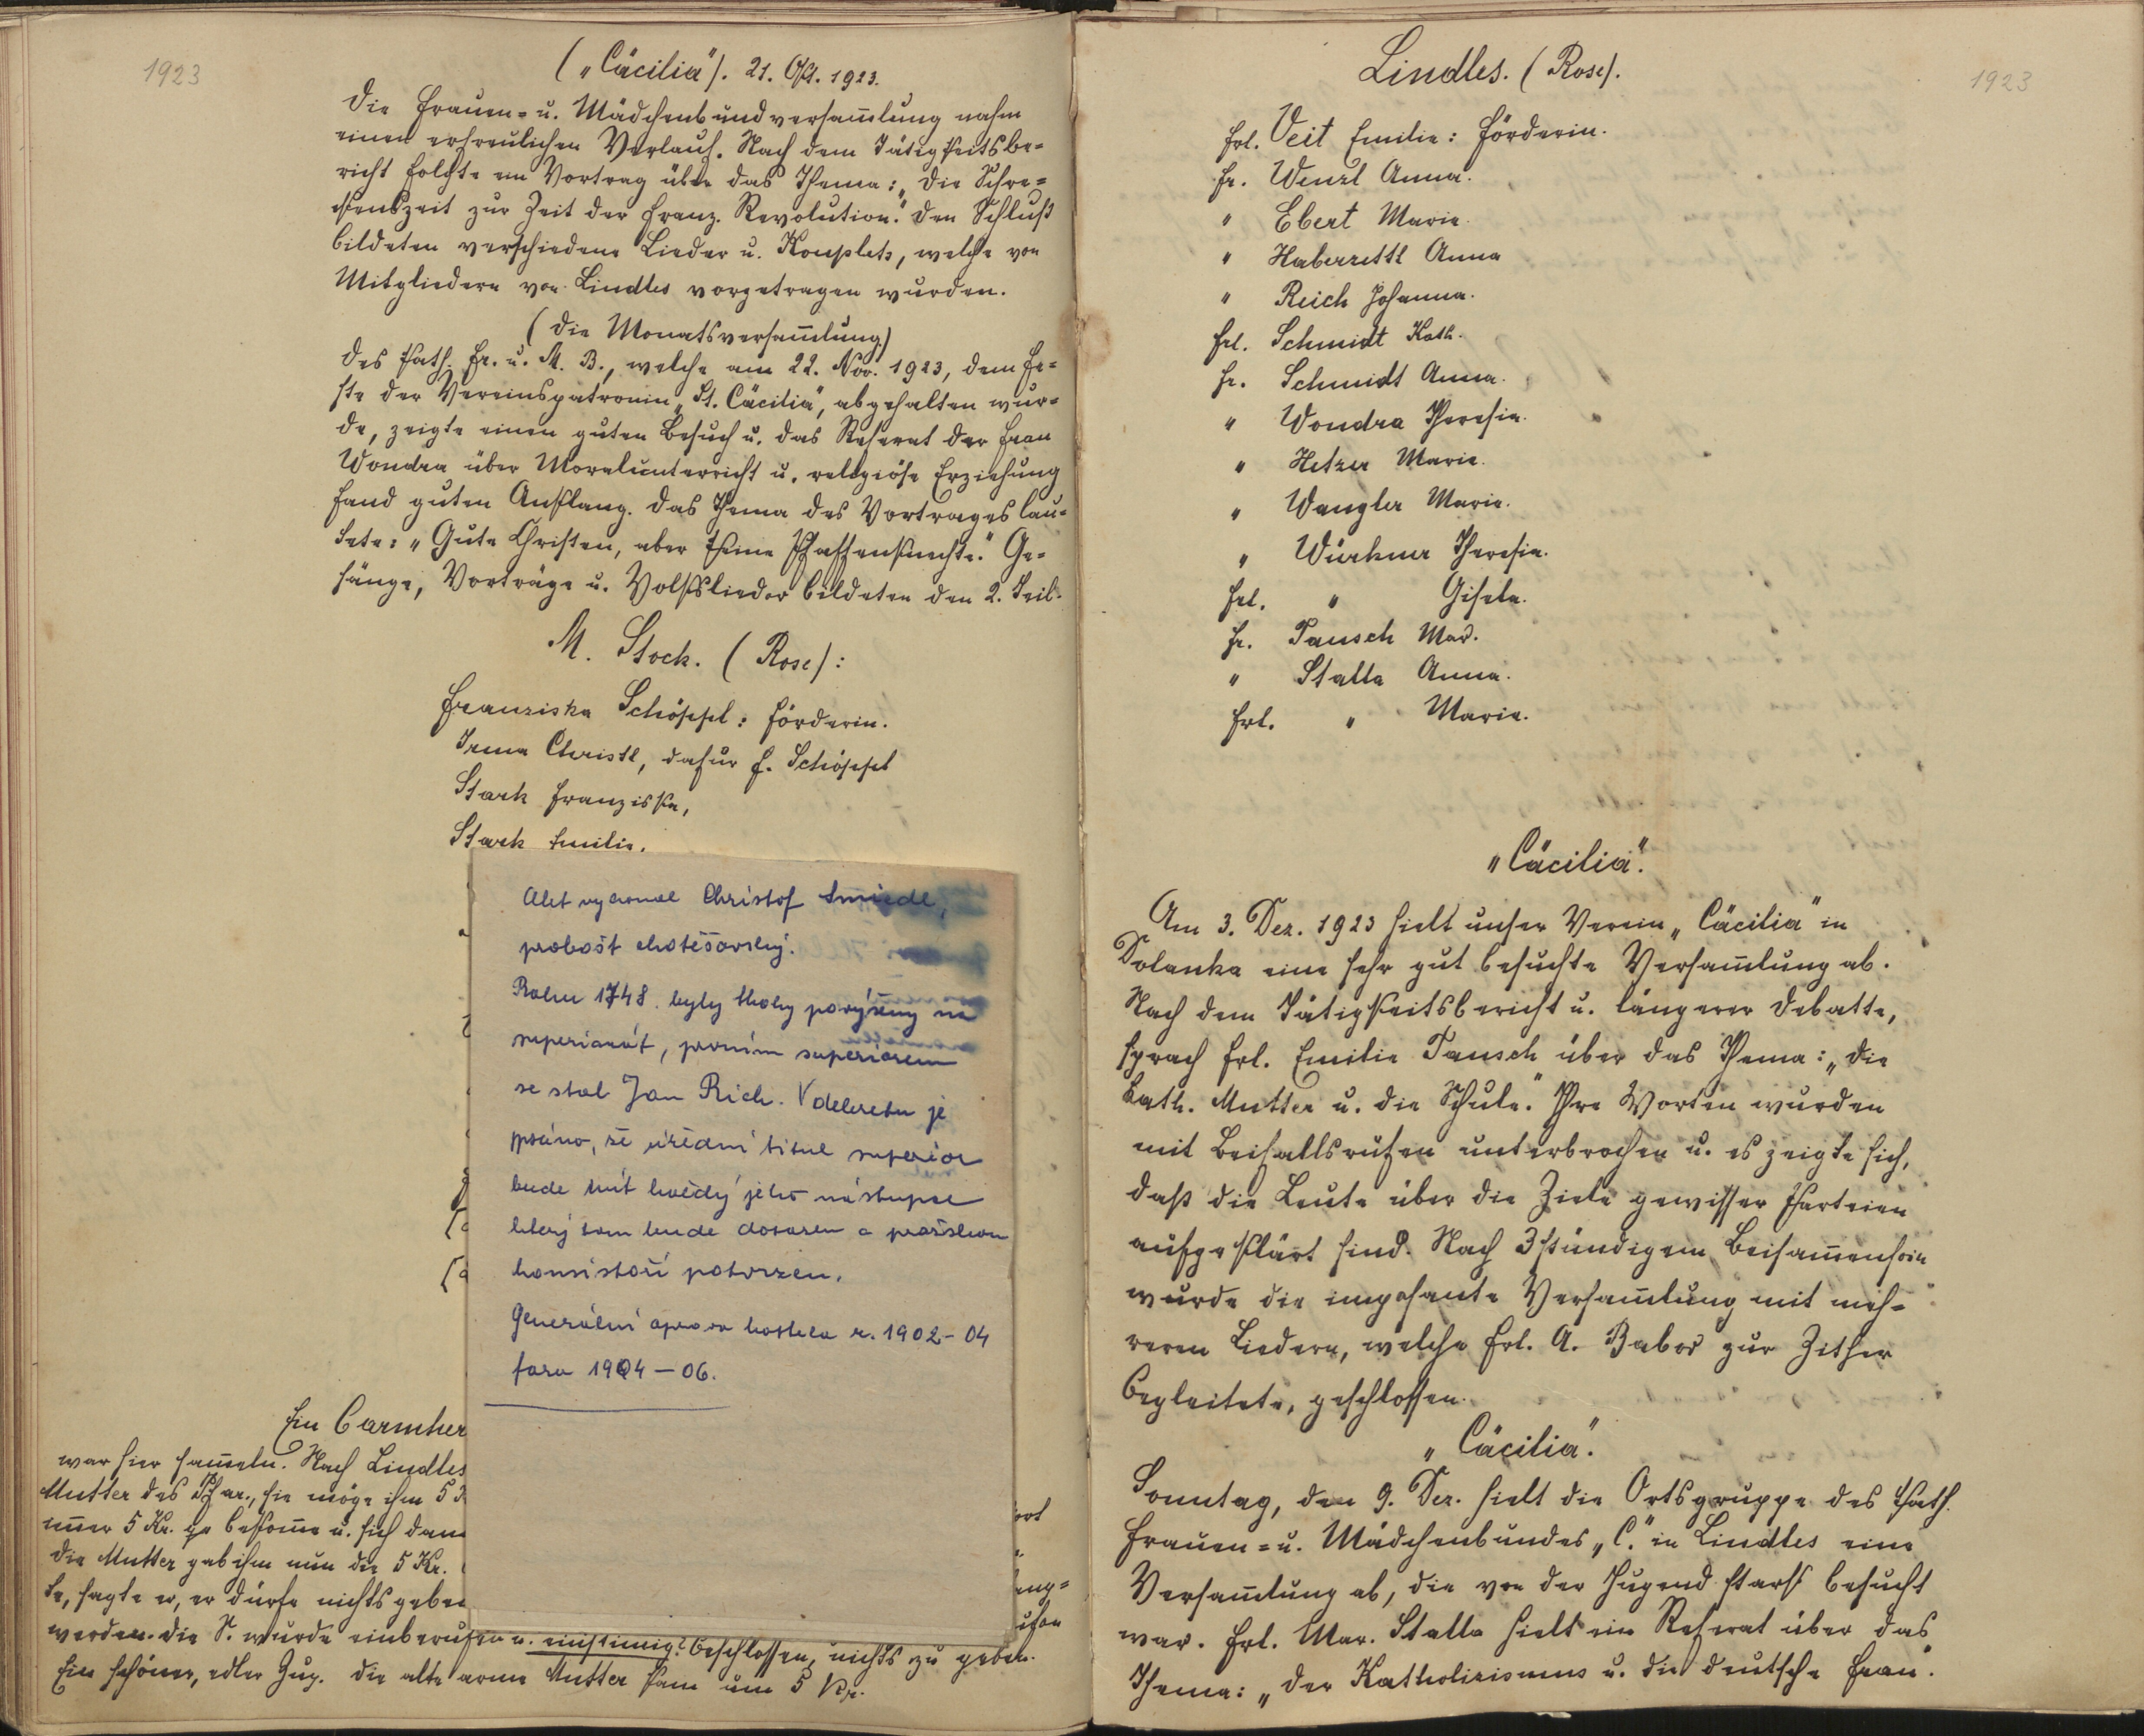 1923
(„Cäcilia"). 21. Okt. 1923.
Die Frauen- u. Mädchenbundversam̅lung nahm
einen erfreulichen Verlauf. Nach dem Tätigkeitsbe-
richt folgte ein Vortrag über das Thema: „Die Schre-
ckenszeit zur Zeit der franz. Revolution." Den Schluß
bildeten verschiedene Lieder u. Kouplets, welche von
Mitgliedern von Lindles vorgetragen wurden.
(Die Monatsversam̅lung)
des kath. Fr. u. M. B., welche am 22. Nov. 1923, dem Fe-
ste der Vereinspatronin „St. Cäcilia", abgehalten wur-
de, zeigte einen guten Besuch u. das Referat der Frau
Wondra über Moralunterricht u. religiöse Erziehung
fand guten Anklang. Das Thema des Vortrages lau-
tete: „Gute Christen, aber keine Pfaffenknechte." Ge-
sänge, Vorträge u. Volkslieder bildeten den 2. Teil.
M. Stock. (Rose):
Franziska Schöppl: Förderin.
Irma Christl, dafür F. Schöppl
Stark Franziska,
Stark Emilie.
Christof Šmiedl,
probošt chotěšovský.
Roku 1748 byly povýšeny na
superiorát, prvním superiorem
se stal Jan Rich. V dekretu je
psáno, že úřední titul superior
bude mít každý jeho nástupce
který sem bude dosazen a pražskou
konsistoří potvrzen.
Generální oprava kostela r. 1902-04
fara 1904-06.
Ein Barmher
war hier sam̅eln. Nach Lindles
Mutter des Pfar., sie möge ihm 5 K
im̅er 5 Kr. bekom̅e u. sich dann
Die Mutter gab ihm nun die 5 Kr.
te, sagte er, er dürfe nichts geben
werden. Die S. wurde einberufen u. einstimig? beschlossen, nichts zu geben.
Ein schöner, edler Zug. Die alte arme Mutter kam um 5 Kr.
1923
Lindles. (Rose).
Frl. Veit Emilie: Förderin.
Fr. Wenzl Anna.
" Ebert Marie.
" Haberzettl Anna
" Reich Johanna.
Frl. Schmidt Kath.
Fr. Schmidt Anna.
" Wondra Theresia.
" Hetzer Marie.
" Wangler Marie.
" Würkner Theresia.
Frl. " Gisela.
Fr. Tausch Mar.
" Stalla Anna.
Frl. " Marie.
„Cäcilia".
Am 3. Dez. 1923 hielt unser Verein „Cäcilia" in
Dolanka eine sehr gut besuchte Versam̅lung ab.
Nach dem Tätigkeitsbericht u. längerer Debatte,
sprach Frl. Emilie Tausch über das Thema: „Die
kath. Mutter u. die Schule." Ihre Worten wurden
mit Beifallsrufen unterbrochen u. es zeigte sich,
daß die Leute über die Ziele gewisser Parteien
aufgeklärt sind. Nach 3stündigem Beisam̅ensein
wurde die imposante Versam̅lung mit meh-
reren Liedern, welche Frl. A. Babor zur Zither
begleitete, geschlossen.
„Cäcilia".
Sonntag, den 9. Dez. hielt die Ortsgruppe des kath.
Frauen- u. Mädchenbundes „C." in Lindles eine
Versam̅lung ab, die von der Jugend stark besucht
war. Frl. Mar. Stalla hielt ein Referat über das
Thema: „Der Katholizismus u. die deutsche Frau".